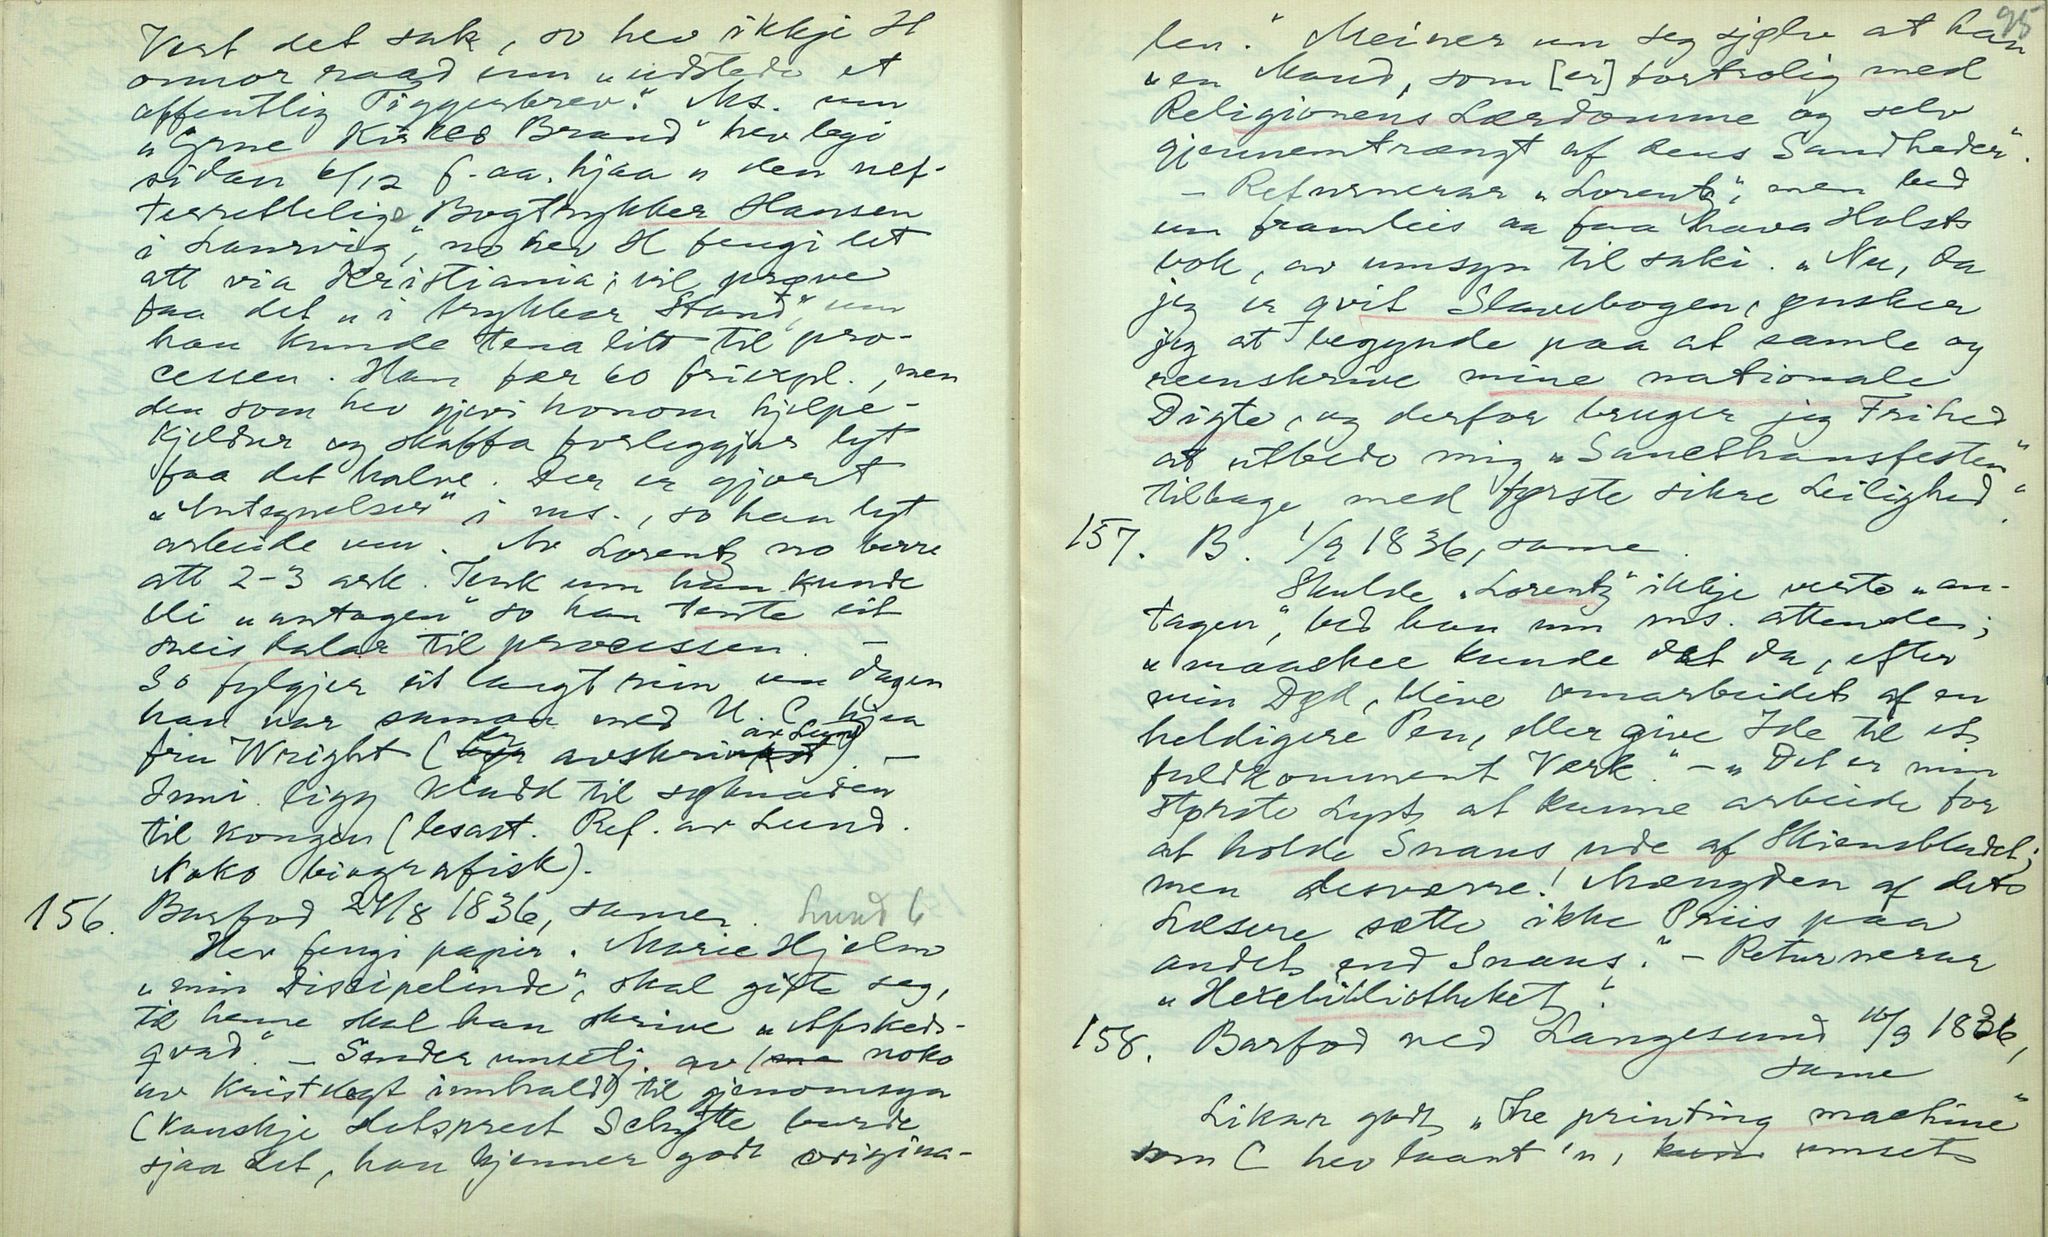 Vert det sak, so hev ikkje H
onnor raad enn „udstede et
offentlig Tiggerbrev." Ms. um
„Grne Kirkes Brand" hev legi
sidan 6/12 f. aa. hjaa „den nef-
terrettelige Bogtrykker Hansen
i Laurvig," no hev H fengi det
att via Kristiania; vil prøve
faa det „i trykbar Stand", um
han kunde tena litt til pro-
cessen. Han fær 60 friexpl., men
den som hev gjevi honom hjelpe-
kjeldur og skaffa forleggjar lyt
faa det halve. Der er gjort
„Antegnelser" i ms., so han lyt
arbeide um. Av Lorentz no berre
att 2-3 ark. Tenk um han kunde
bli „antagen" so han tente eit
sneis dalar til processen. —
So fylgjer eit langt rim um dagen
han var saman med H. C. hjaa
fru Wright (er avskrive av Lund). —
Inni ligg kladd til søknaden
til kongen (lesast. Ref. av Lund.
Noko biografisk).
156. Barfod 24/8 1836, same. Lund 6
Hev fengi papir. Marie Hjelm
„min Discipelinde", skal gifta seg,
til henne skal han skrive „Afskeds-
qvad." — Sender umsetj. av noko
av kristelegt innhald til gjenomsyn
(kanskje slotsprest Schytte burde
sjaa det, han kjenner godt origina-
95
len." Meiner um seg sjølv at han
„en Mand, som [er] fortrolig med
Religionens Lærdomme og selv
gjennemtrængt af dens Sandheder".
— Returnerar „Lorentz", men bed
um framleis aa faa hava Holsts
bok, av umsyn til saki. „Nu, da
jeg er qvit Slavebogen, ønsker
jeg at begynde paa at samle og
reenskrive mine nationale
Digte, og derfor bruger jeg Frihed
at utbede mig „Sancthansfesten"
tilbage med første sikre Leilighed."
157. B. 1/9 1836, same.
Skulde „Lorentz" ikkje verte „an-
tagen", bed han um ms. attende;
„maaskee kunde det da, efter
min Død, blive omarbeidet af en
heldigere Pen, eller give Ide til et
fuldkomment Værk." — „Det er min
største Lyst at kunne arbeide for
at holde Snaus ude af Skiensbladet;
men desværre! Mængden af dets
Læsere sætte ikke Priis paa
andet end Snaus." — Returnerar
„Hexebibliotheket".
158. Barfod ved Langesund 10/9 1836,
same
Likar godt „The printing machine"
som C hev laant 'n, umset